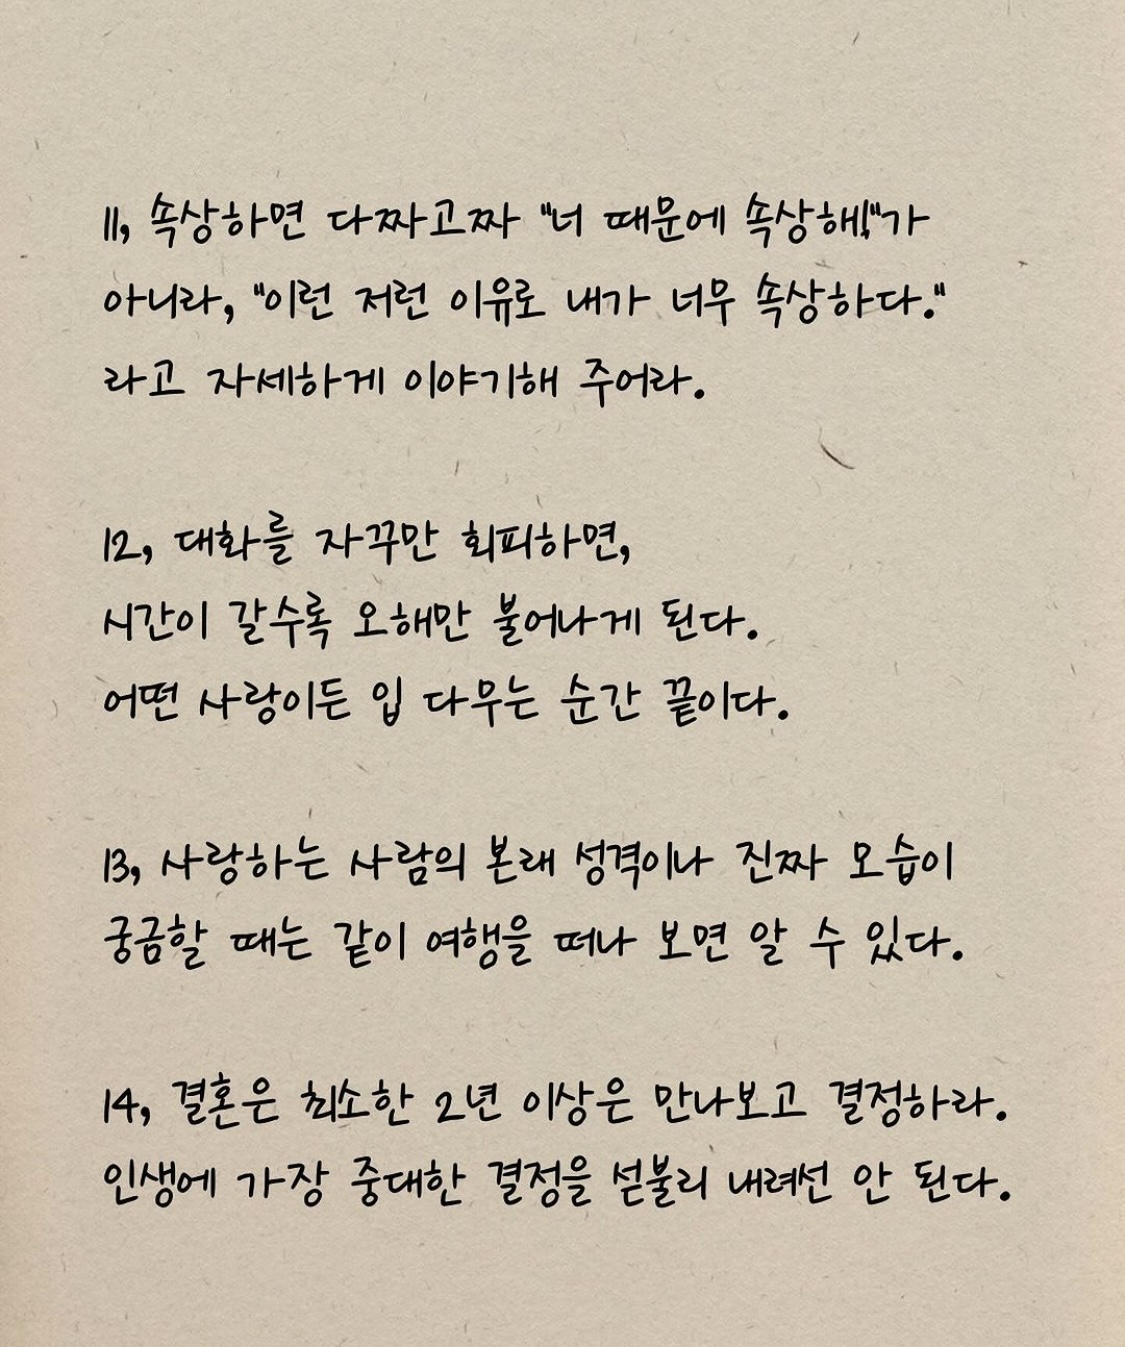 11, 속상하면 다짜고짜 "너 때문에 속상해!"가
아니라, "이런 저런 이유로 내가 너무 속상하다."
라고 자세하게 이야기해 주어라.
12, 대화를 자꾸만 회피하면,
시간이 갈수록 오해만 불어나게 된다.
어떤 사랑이든 입 다무는 순간 끝이다.
13, 사랑하는 사람의 본래 성격이나 진짜 모습이
궁금할 때는 같이 여행을 떠나 보면 알 수 있다.
14, 결혼은 최소한 2년 이상은 만나보고 결정하라.
인생에 가장 중대한 결정을 섣불리 내려선 안 된다.